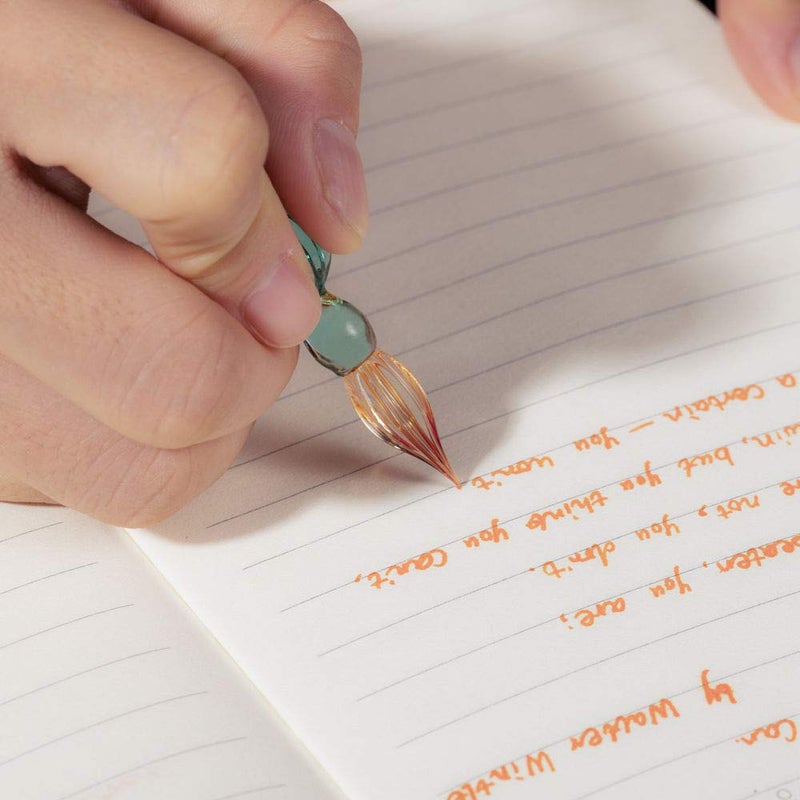 Can.
by Walter Wintle
beaten, you are;
re not, you don't.
win, but you think you can't,
a certain — you won't